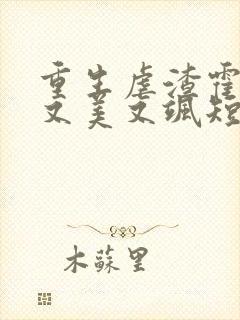 重生虐渣霍
又美又飒短
木蘇里